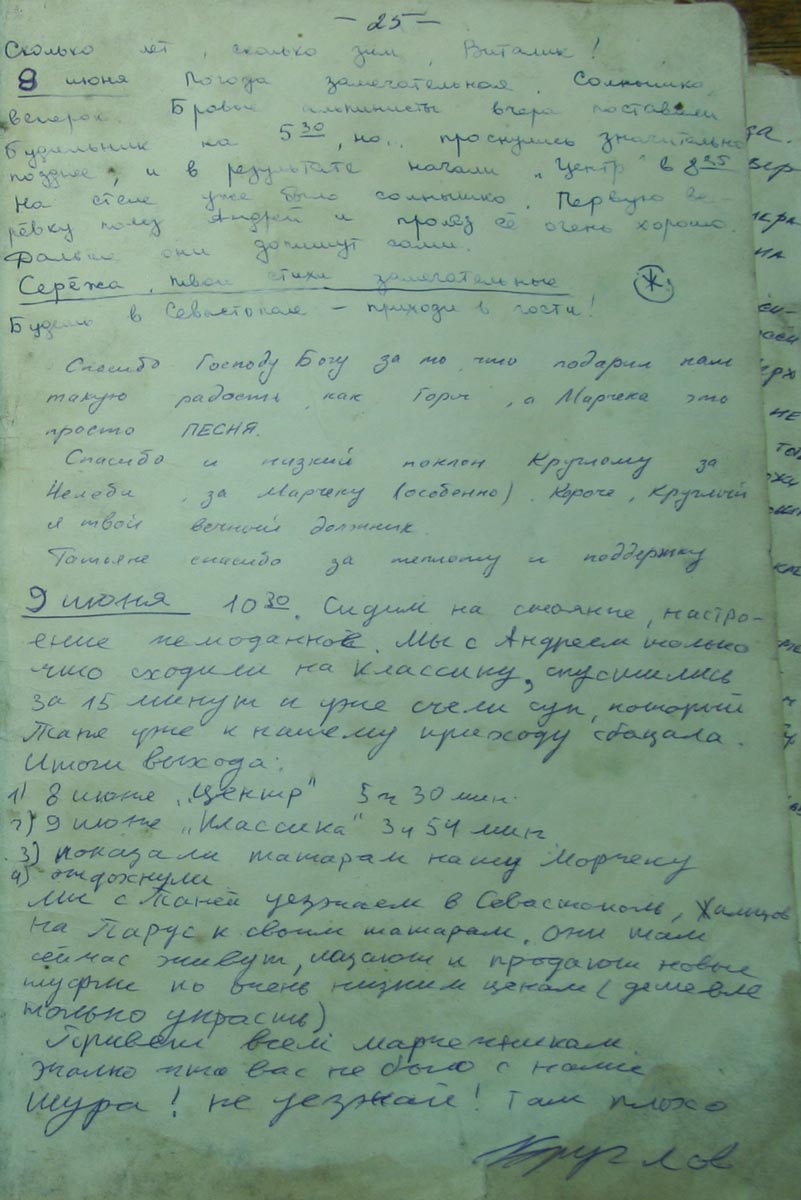 – 25 –
Сколько лет, сколько зим, Виталик!
8 июня Погода замечательная. Солнышко,
ветерок. Бравые альпинисты вчера поставили
будильник на 5 30, но... проснулись значительно
позднее, и в результате начали "Центр" в 8 25
На стене уже было солнышко. Первую ве-
рёвку полез Андрей и пролез её очень хорошо.
Дальше они допишут сами.
Серёжа, твои стихи замечательные
Ж
Будешь в Севастополе – приходи в гости!
Спасибо Господу Богу за то, что подарил нам
такую радость, как Горы, а Марчека это
просто ПЕСНЯ.
Спасибо и низкий поклон Круглому за
за Марчеку (особенно). Короче, Круглый
я твой вечный должник.
Татьяне спасибо за теплоту и поддержку
9 июня 10 30. Сидим на стоянке, настро-
ение чемоданное. Мы с Андреем только
что сходили на классику, спустились
за 15 минут и уже съели суп, который
Таня уже к нашему приходу сбацала.
Итоги выхода:
1) 8 июня "Центр" 5 ч 30 мин.
2) 9 июня "Классика" 3 ч 54 мин
3) показали татарам нашу Морчеку
4) отдохнули
Мы с Таней уезжаем в Севастополь,
на Парус к своим татарам. Они там
сейчас живут, лазают и продают новые
туфли по очень низким ценам (дешевле
только украсть)
Привет всем марчекникам.
Жалко что вас не было с нами
Шура! не уезжай! Там плохо
Круглов